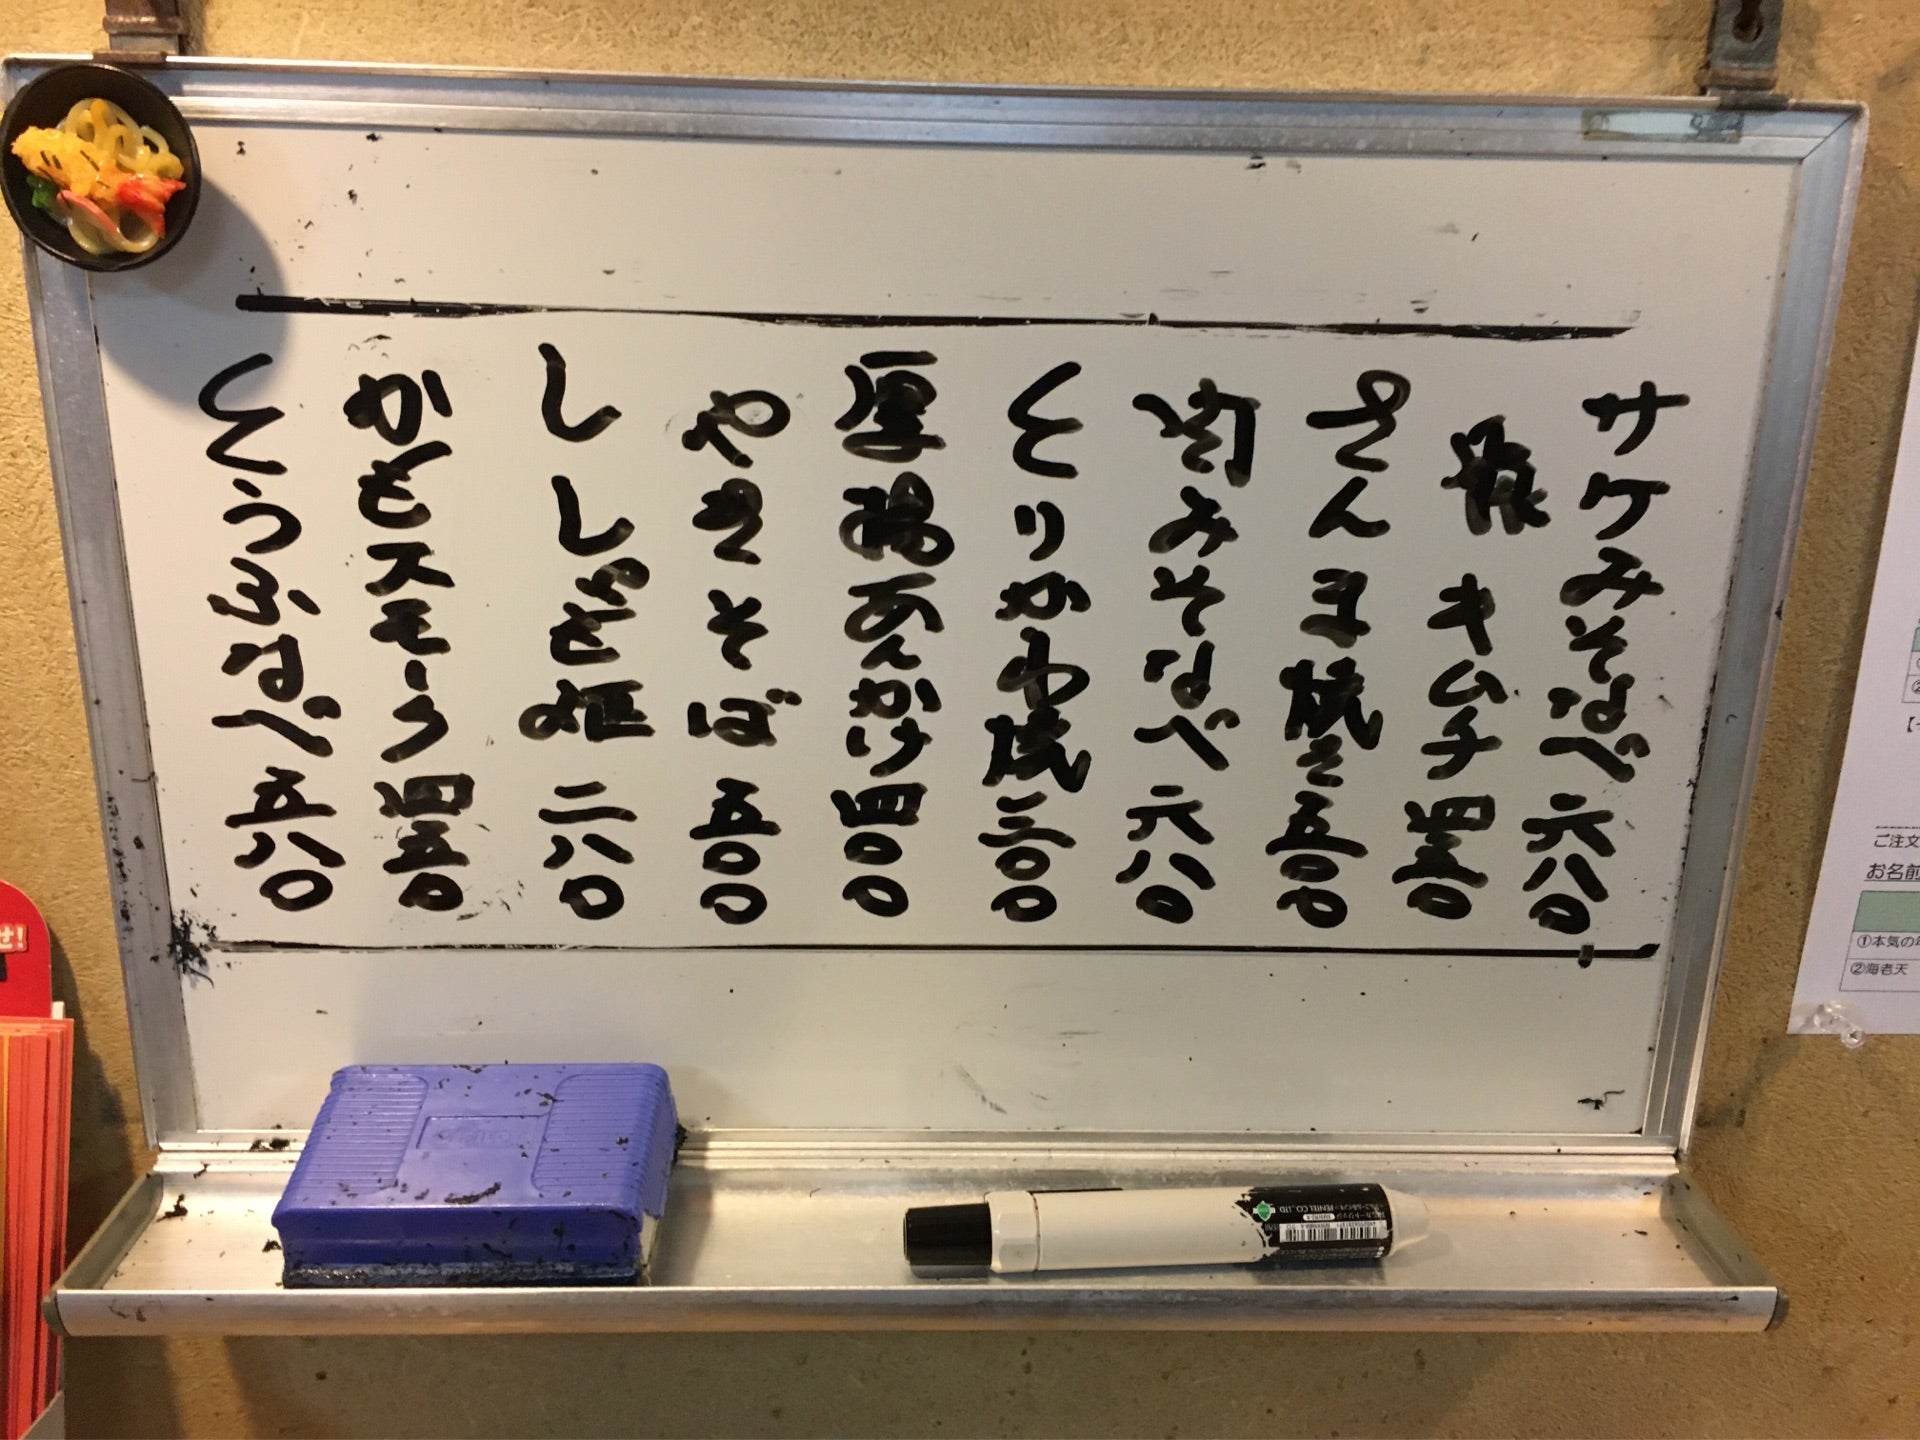 サケみそなべ 六八〇
豚キムチ 四五〇
さんま焼き 五〇〇
肉みそなべ 六八〇
とりかわ焼 三〇〇
厚揚あんかけ 四〇〇
やきそば 五〇〇
ししゃも 二八〇
がもスモーク 四五〇
とうふなべ 五八〇
せ!
ご注文
お名前
①本気の
②海老天
PENTEL CO., LTD